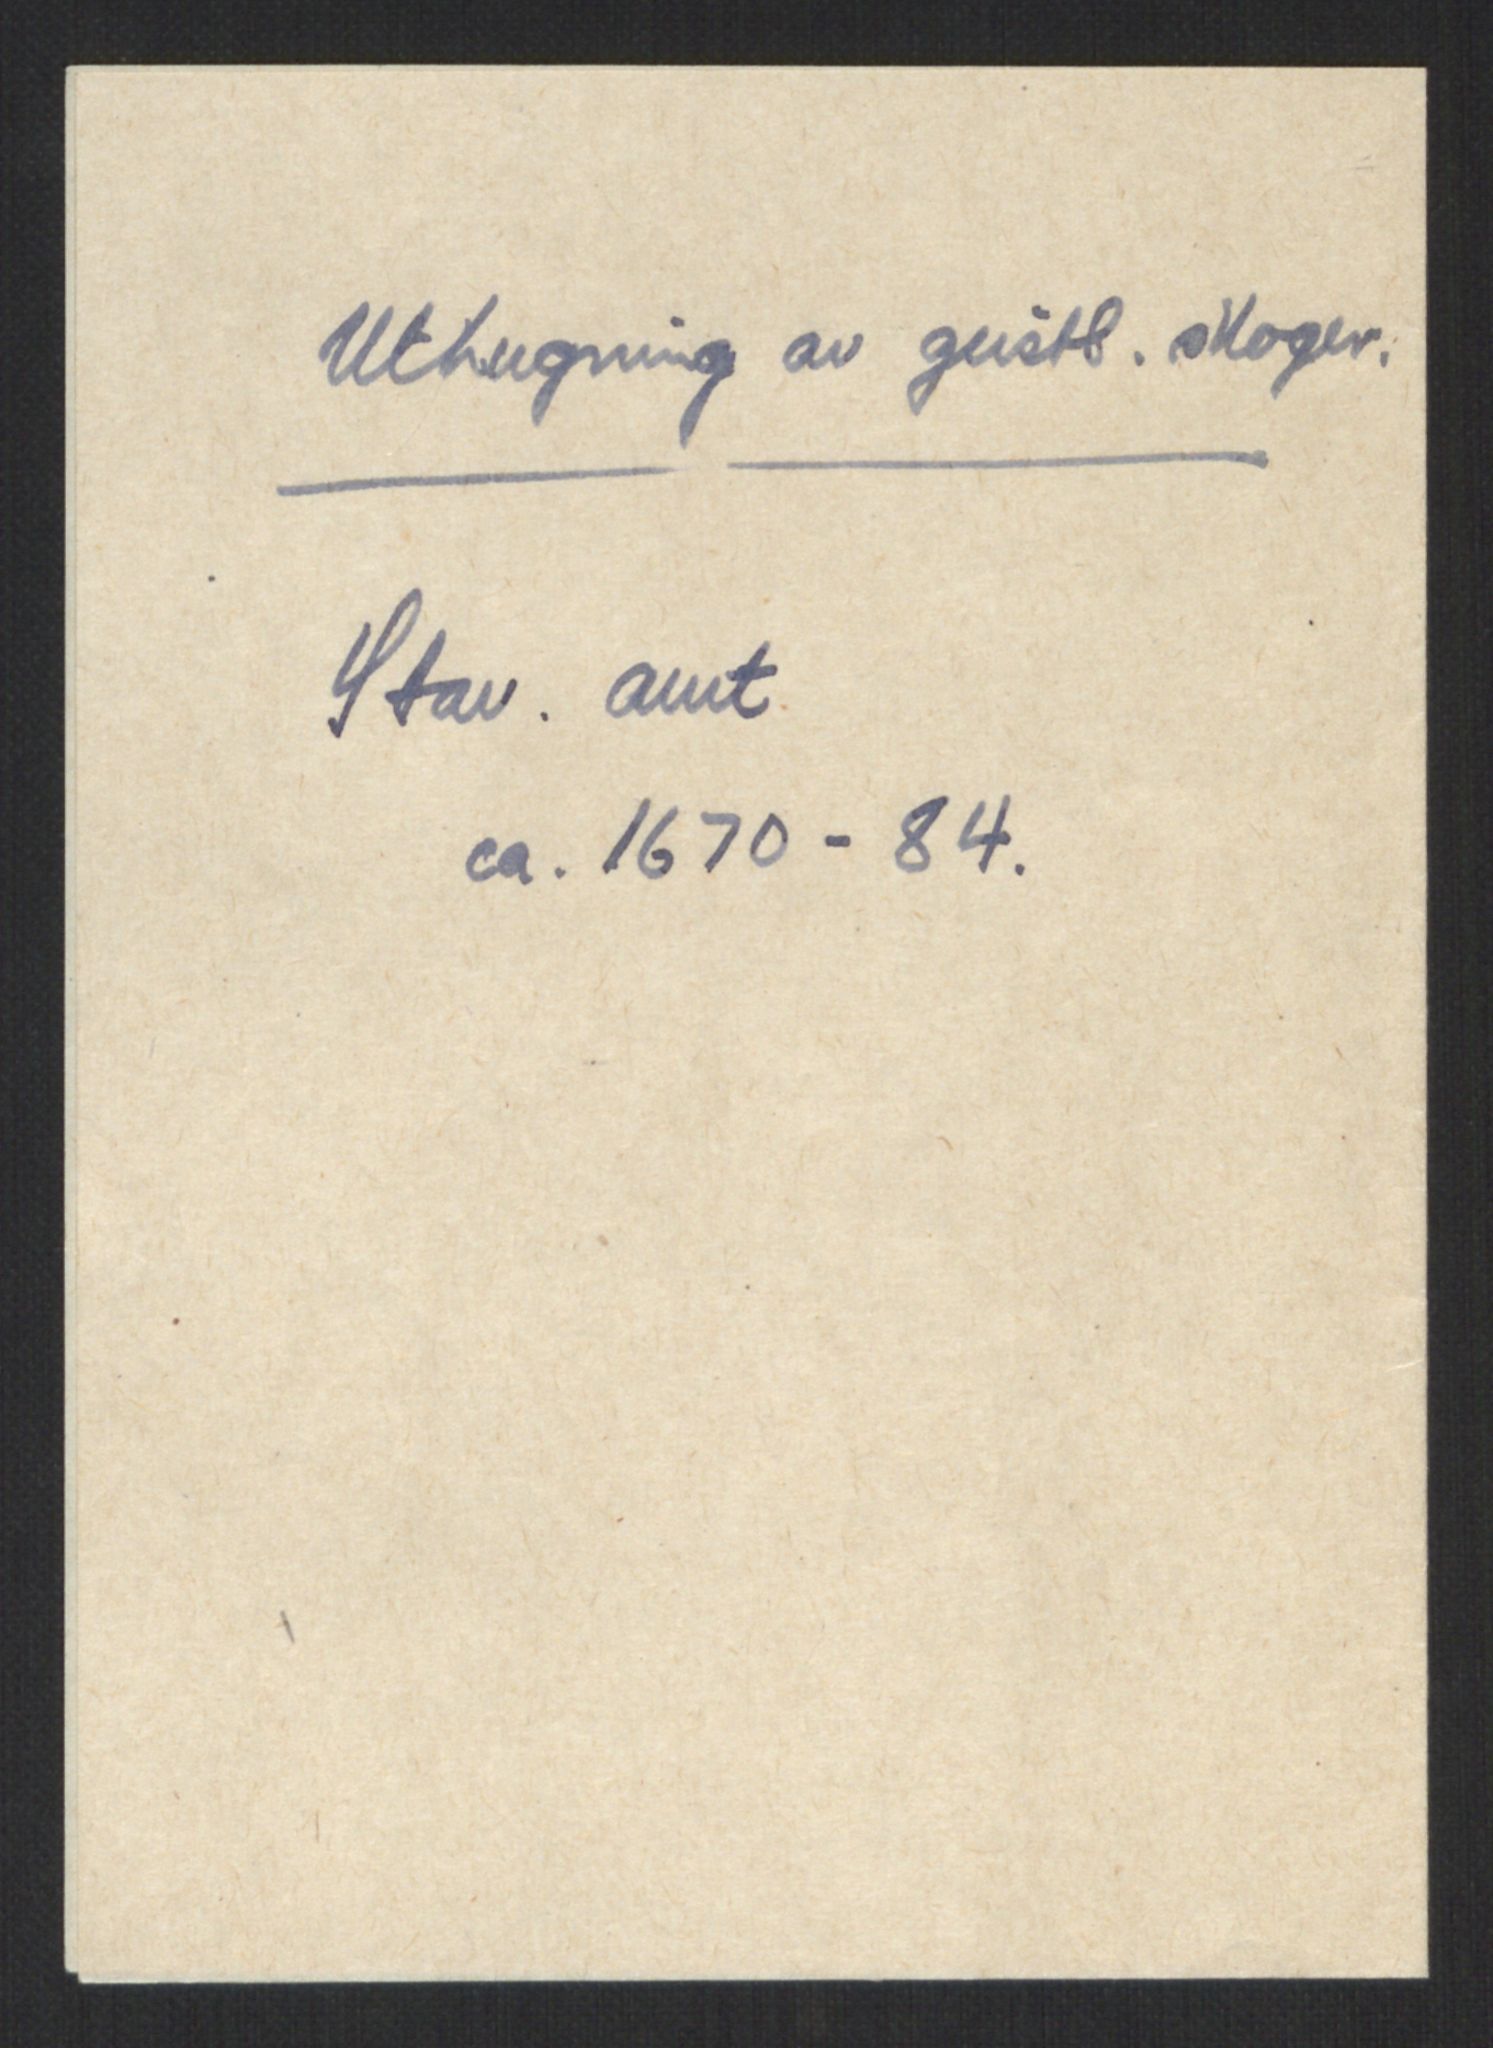 Uthugning av geistl. skoger.
Stav. amt
ca. 1670 - 84.